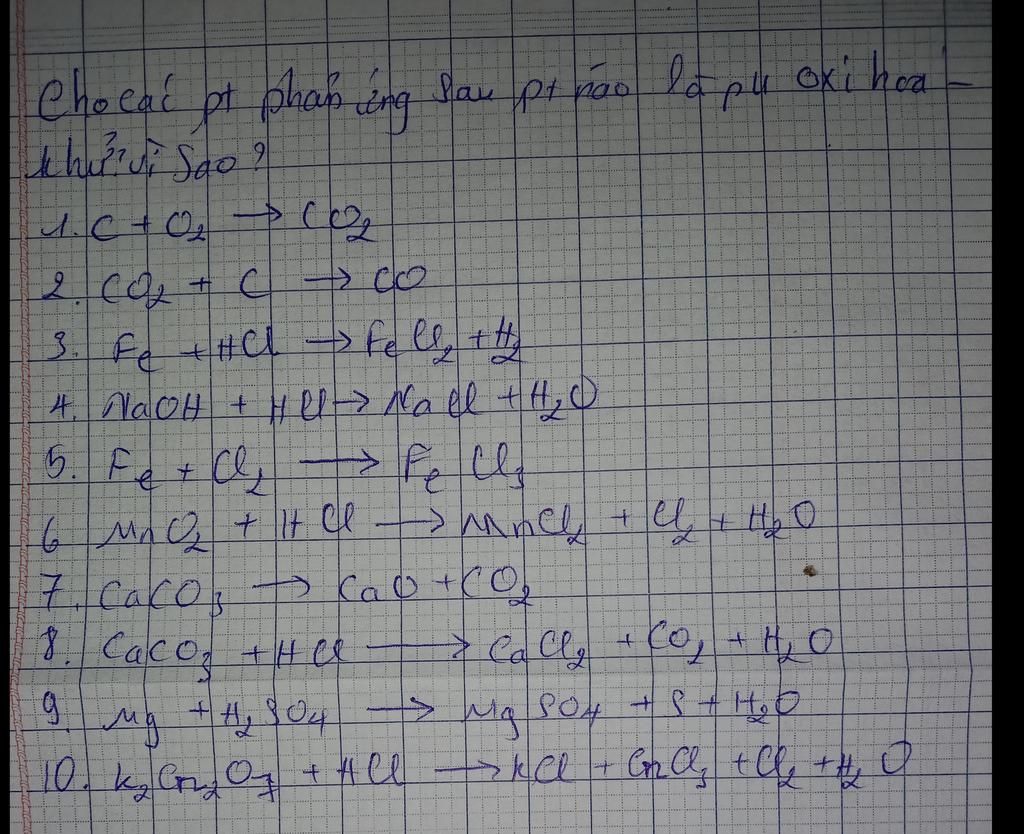 Cho các pt phản ứng sau pt nào là pư oxi hoá -
khử? vì sao?
1. C + O₂ → CO₂
2. CO₂ + C → CO
3. Fe + HCl → FeCl₂ + H₂
4. NaOH + HCl → NaCl + H₂O
5. Fe + Cl₂ → FeCl₃
6 MnO₂ + HCl → MnCl₂ + Cl₂ + H₂O
7. CaCO₃ → CaO + CO₂
8. CaCO₃ + HCl → CaCl₂ + CO₂ + H₂O
9. Mg + H₂SO₄ → MgSO₄ + S + H₂O
10. K₂Cr₂O₇ + HCl → KCl + CrCl₃ + Cl₂ + H₂O